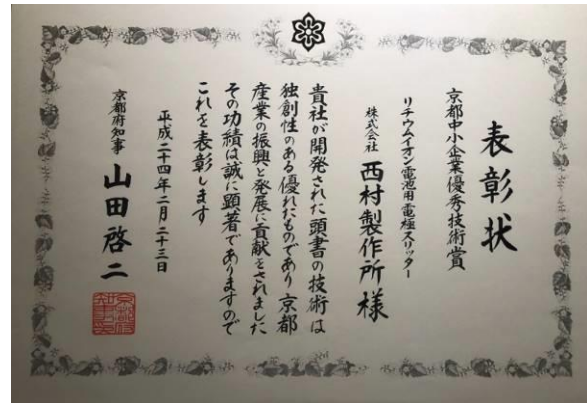 表彰状
京都中小企業優秀技術賞
リチウムイオン電池用電極スリッター
株式会社 西村製作所様
貴社が開発された頭書の技術は
独創性のある優れたものであり 京都
産業の振興と発展に貢献をされました
その功績は誠に顕著でありますので
これを表彰します
平成二十四年二月二十三日
京都府知事 山田啓二
京都府知事之印